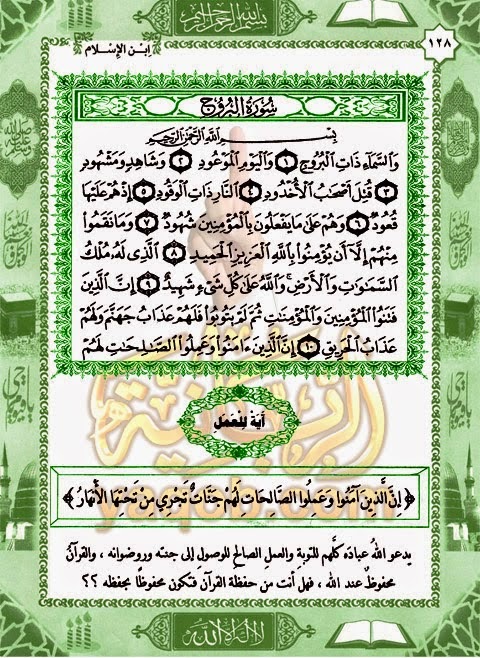 بسم الله الرحمن الرحيم
ابن الإسلام
١٢٨
سُورَةُ البُرُوجِ
بِسْمِ اللَّهِ الرَّحْمَٰنِ الرَّحِيمِ
وَالسَّمَاءِ ذَاتِ الْبُرُوجِ ١ وَالْيَوْمِ الْمَوْعُودِ ٢ وَشَاهِدٍ وَمَشْهُودٍ
٣ قُتِلَ أَصْحَابُ الْأُخْدُودِ ٤ النَّارِ ذَاتِ الْوَقُودِ ٥ إِذْ هُمْ عَلَيْهَا
قُعُودٌ ٦ وَهُمْ عَلَىٰ مَا يَفْعَلُونَ بِالْمُؤْمِنِينَ شُهُودٌ ٧ وَمَا نَقَمُوا
مِنْهُمْ إِلَّا أَن يُؤْمِنُوا بِاللَّهِ الْعَزِيزِ الْحَمِيدِ ٨ الَّذِي لَهُ مُلْكُ
السَّمَاوَاتِ وَالْأَرْضِ ۚ وَاللَّهُ عَلَىٰ كُلِّ شَيْءٍ شَهِيدٌ ٩ إِنَّ الَّذِينَ
فَتَنُوا الْمُؤْمِنِينَ وَالْمُؤْمِنَاتِ ثُمَّ لَمْ يَتُوبُوا فَلَهُمْ عَذَابُ جَهَنَّمَ وَلَهُمْ
عَذَابُ الْحَرِيقِ ١٠ إِنَّ الَّذِينَ آمَنُوا وَعَمِلُوا الصَّالِحَاتِ لَهُمْ
آيَةٌ لِلْعَمَلِ
﴿ إِنَّ الَّذِينَ آمَنُوا وَعَمِلُوا الصَّالِحَاتِ لَهُمْ جَنَّاتٌ تَجْرِي مِنْ تَحْتِهَا الْأَنْهَارُ ﴾
يدعو اللهُ عبادَه كلَّهم للتوبةِ والعملِ الصالحِ للوصول إلى جنته وروضوانه ، والقرآنُ
محفوظٌ عند الله ، فهل أنت من حفظة القرآن فتكون محفوظًا بحفظه ؟؟
لا إله إلا الله